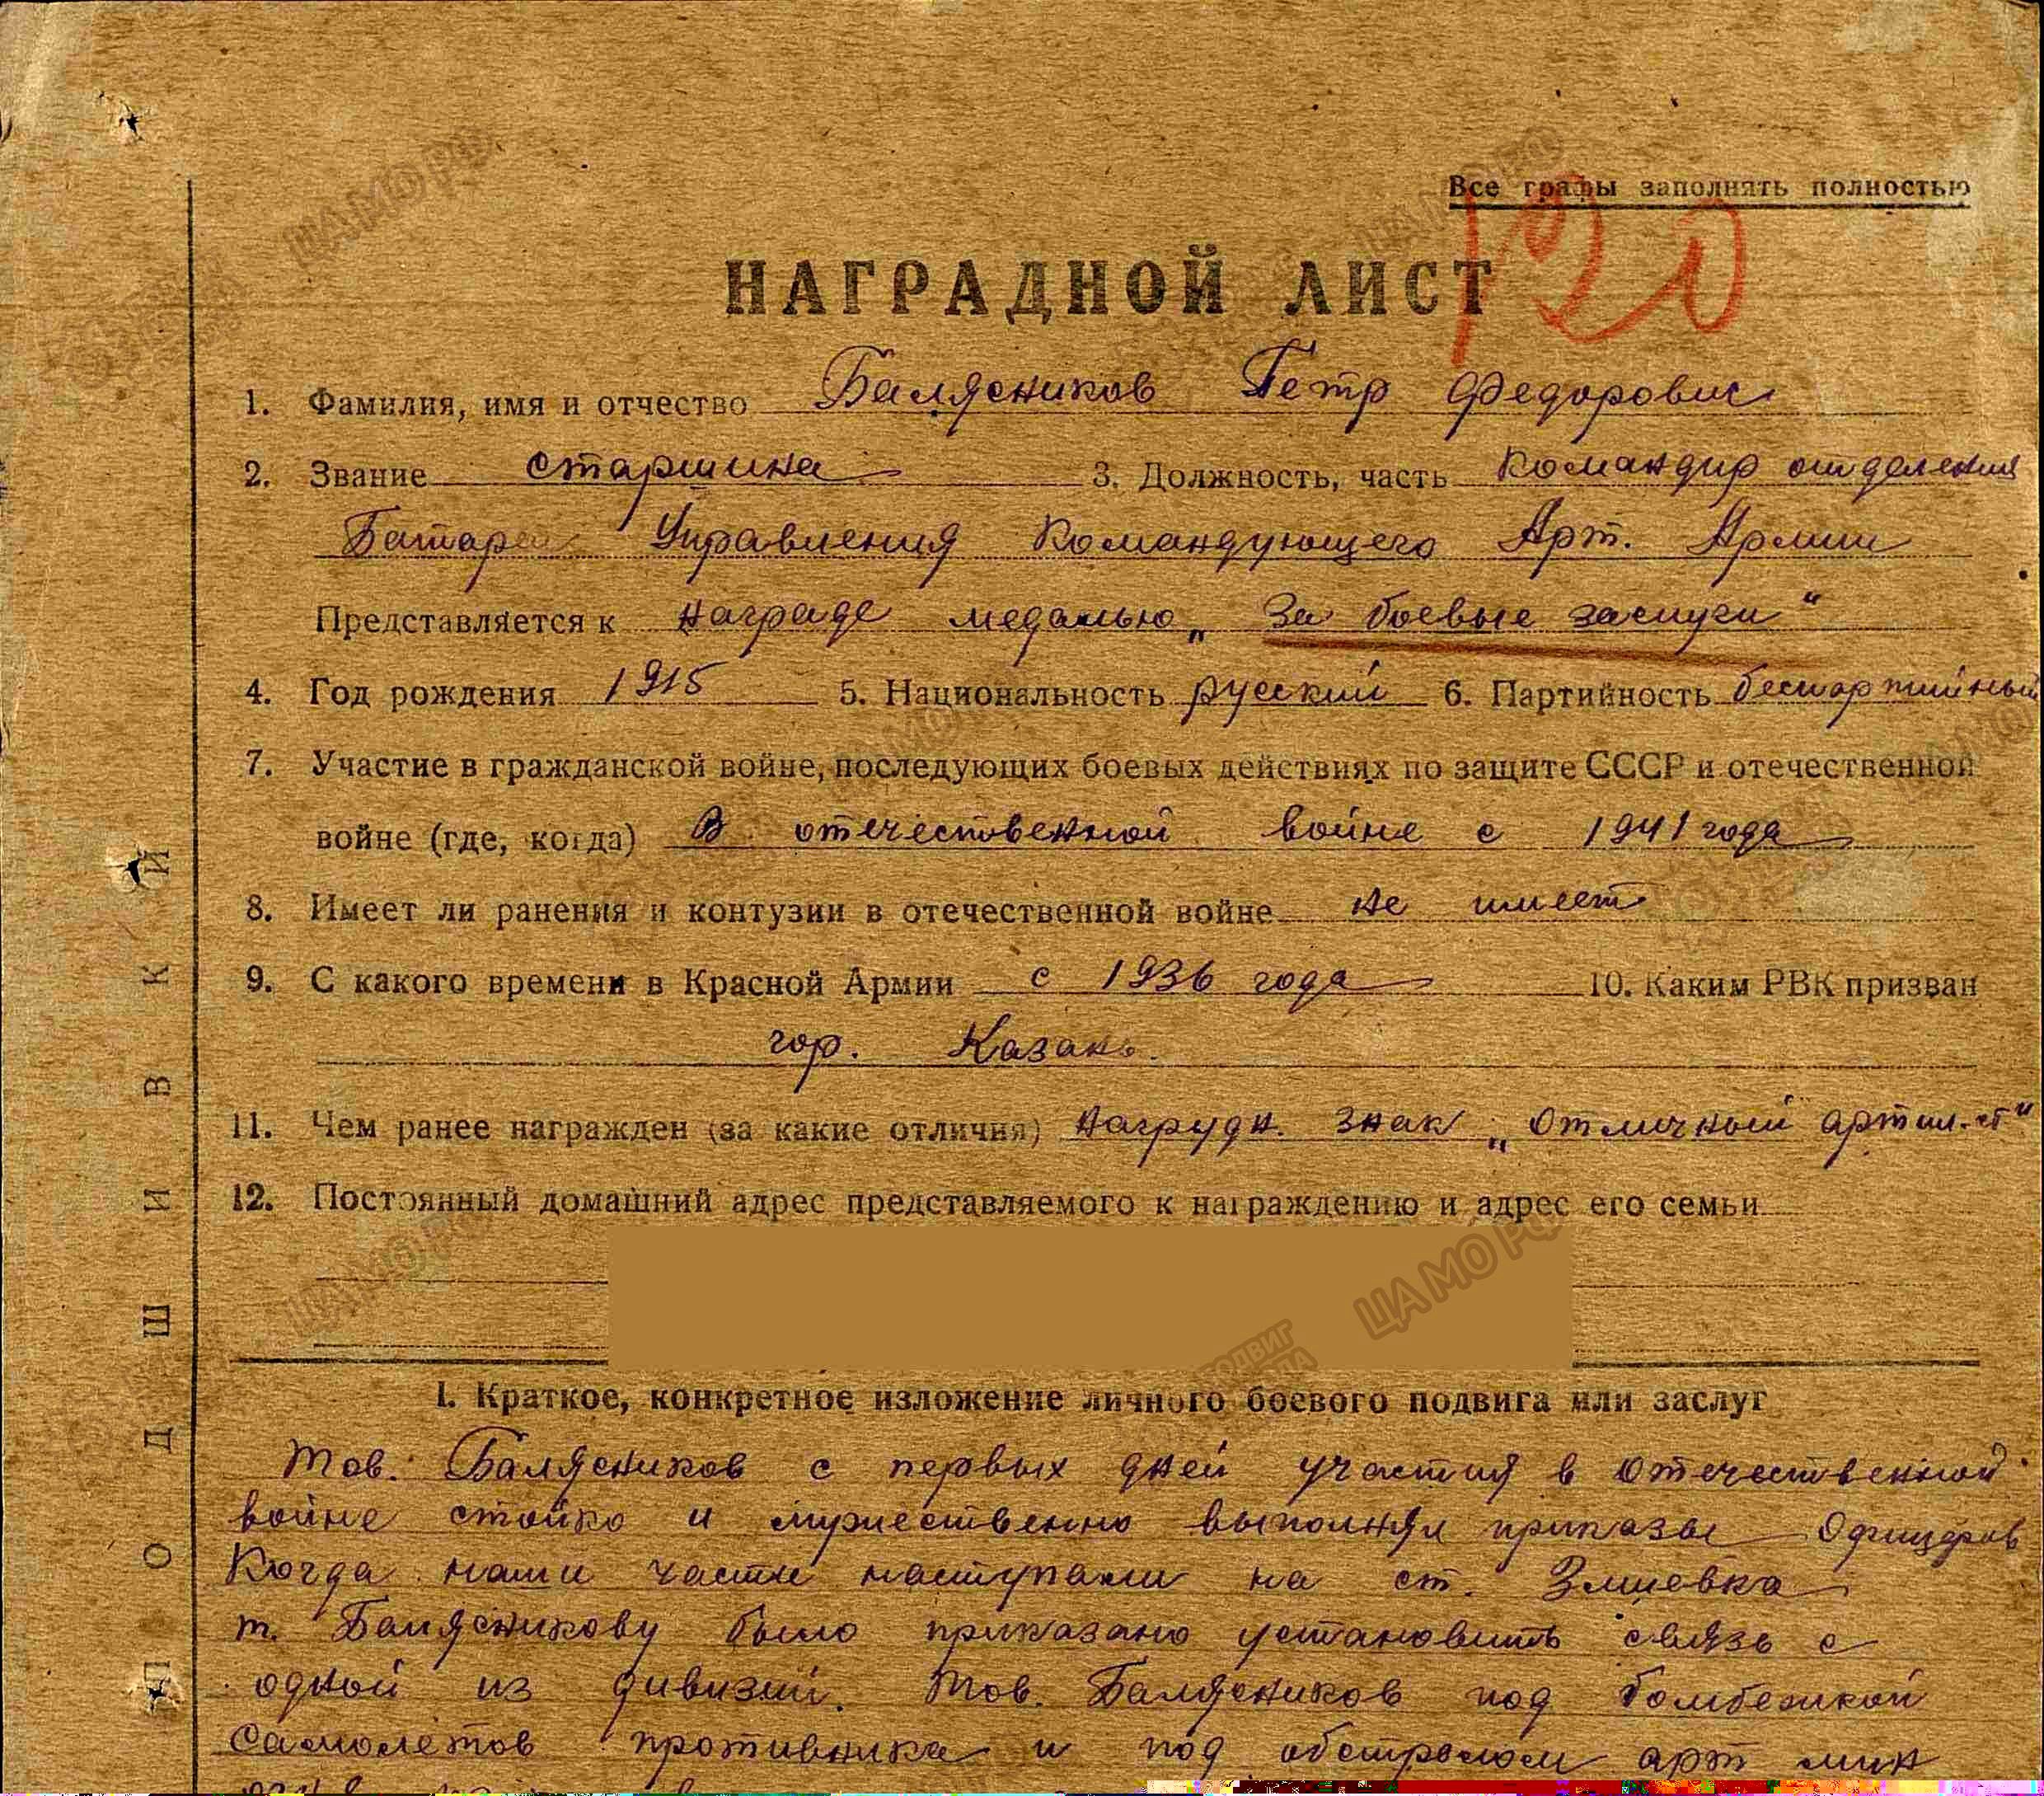 Все графы заполнять полностью
120
НАГРАДНОЙ ЛИСТ
1. Фамилия, имя и отчество Балясников Петр Федорович
2. Звание старшина 3. Должность, часть Командир отделения
Батареи Управления Командующего Арт. Армии
Представляется к награде медалью „За боевые заслуги“
4. Год рождения 1915 5. Национальность русский 6. Партийность беспартийный
7. Участие в гражданской войне, последующих боевых действиях по защите СССР и отечественной
войне (где, когда) В отечественной войне с 1941 года
8. Имеет ли ранения и контузии в отечественной войне не имеет
9. С какого времени в Красной Армии с 1936 года 10. Каким РВК призван
гор. Казань.
11. Чем ранее награжден (за какие отличия) нагрудн. знак „Отличный артил-ст“
12. Постоянный домашний адрес представляемого к награждению и адрес его семьи
I. Краткое, конкретное изложение личного боевого подвига или заслуг
Тов. Балясников с первых дней участия в отечественной
войне стойко и мужественно выполнял приказы Офицеров
Когда наши части наступали на ст. Змиевка
т. Балясникову было приказано установить связь с
одной из дивизий. Тов. Балясников под бомбежкой
самолетов противника и под обстрелом арт мин
ПОДШИВКИЙ
ЦАМО РФ
ПОДВИГ НАРОДА